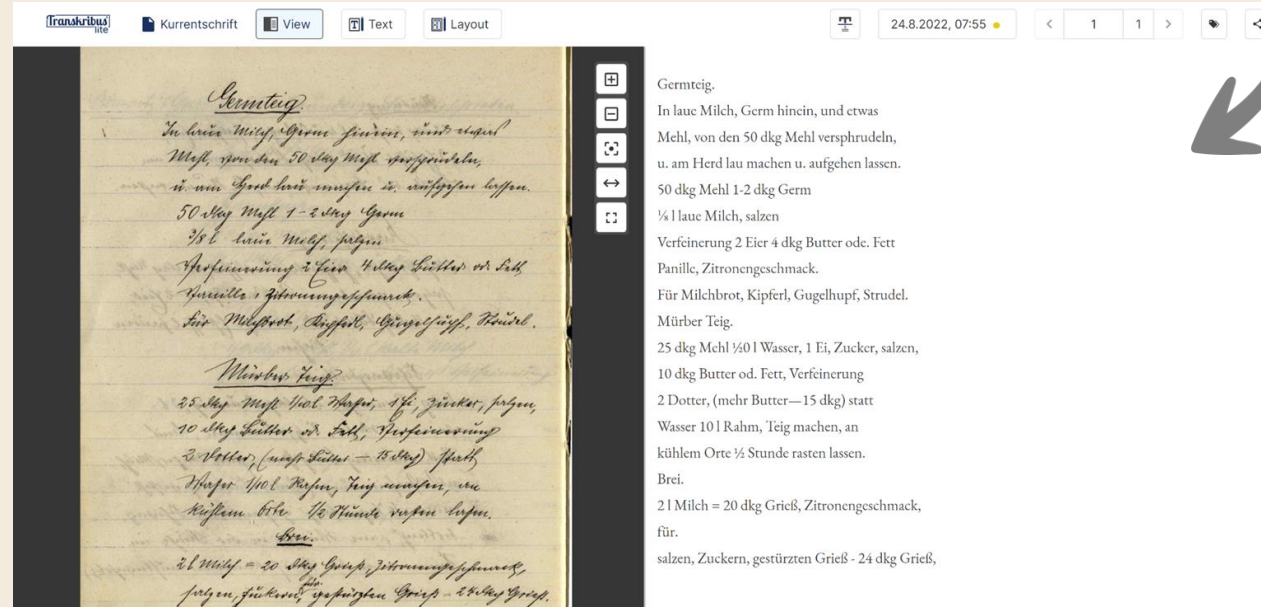 Transkribus
lite
Kurrentschrift
View
Text
Layout
24.8.2022, 07:55
1
1
Germteig.
In laue Milch, Germ hinein, und etwas
Mehl, von den 50 dkg Mehl versprudeln,
u. am Herd lau machen u. aufgehen lassen.
50 dkg Mehl 1-2 dkg Germ
3/8 l laue Milch, salzen
Verfeinerung 2 Eier 4 dkg Butter od. Fett
Vanille, Zitronengeschmack.
Für Milchbrot, Kipferl, Gugelhupf, Strudel.
Mürber Teig.
25 dkg Mehl 1/10 l Wasser, 1 Ei, Zucker, salzen,
10 dkg Butter od. Fett, Verfeinerung
2 Dotter, (mehr Butter — 15 dkg) statt
Wasser 1/10 l Rahm, Teig machen, an
kühlem Orte 1/2 Stunde rasten lassen.
Brei.
2 l Milch = 20 dkg Grieß, Zitronengeschmack,
für
salzen, Zuckern, gestürzten Grieß - 24 dkg Grieß.
Germteig.
In laue Milch, Germ hinein, und etwas
Mehl, von den 50 dkg Mehl versphrudeln,
u. am Herd lau machen u. aufgehen lassen.
50 dkg Mehl 1-2 dkg Germ
⅛ l laue Milch, salzen
Verfeinerung 2 Eier 4 dkg Butter ode. Fett
Panille, Zitronengeschmack.
Für Milchbrot, Kipferl, Gugelhupf, Strudel.
Mürber Teig.
25 dkg Mehl ½0 l Wasser, 1 Ei, Zucker, salzen,
10 dkg Butter od. Fett, Verfeinerung
2 Dotter, (mehr Butter—15 dkg) statt
Wasser 10 l Rahm, Teig machen, an
kühlem Orte ½ Stunde rasten lassen.
Brei.
2 l Milch = 20 dkg Grieß, Zitronengeschmack,
für.
salzen, Zuckern, gestürzten Grieß - 24 dkg Grieß,